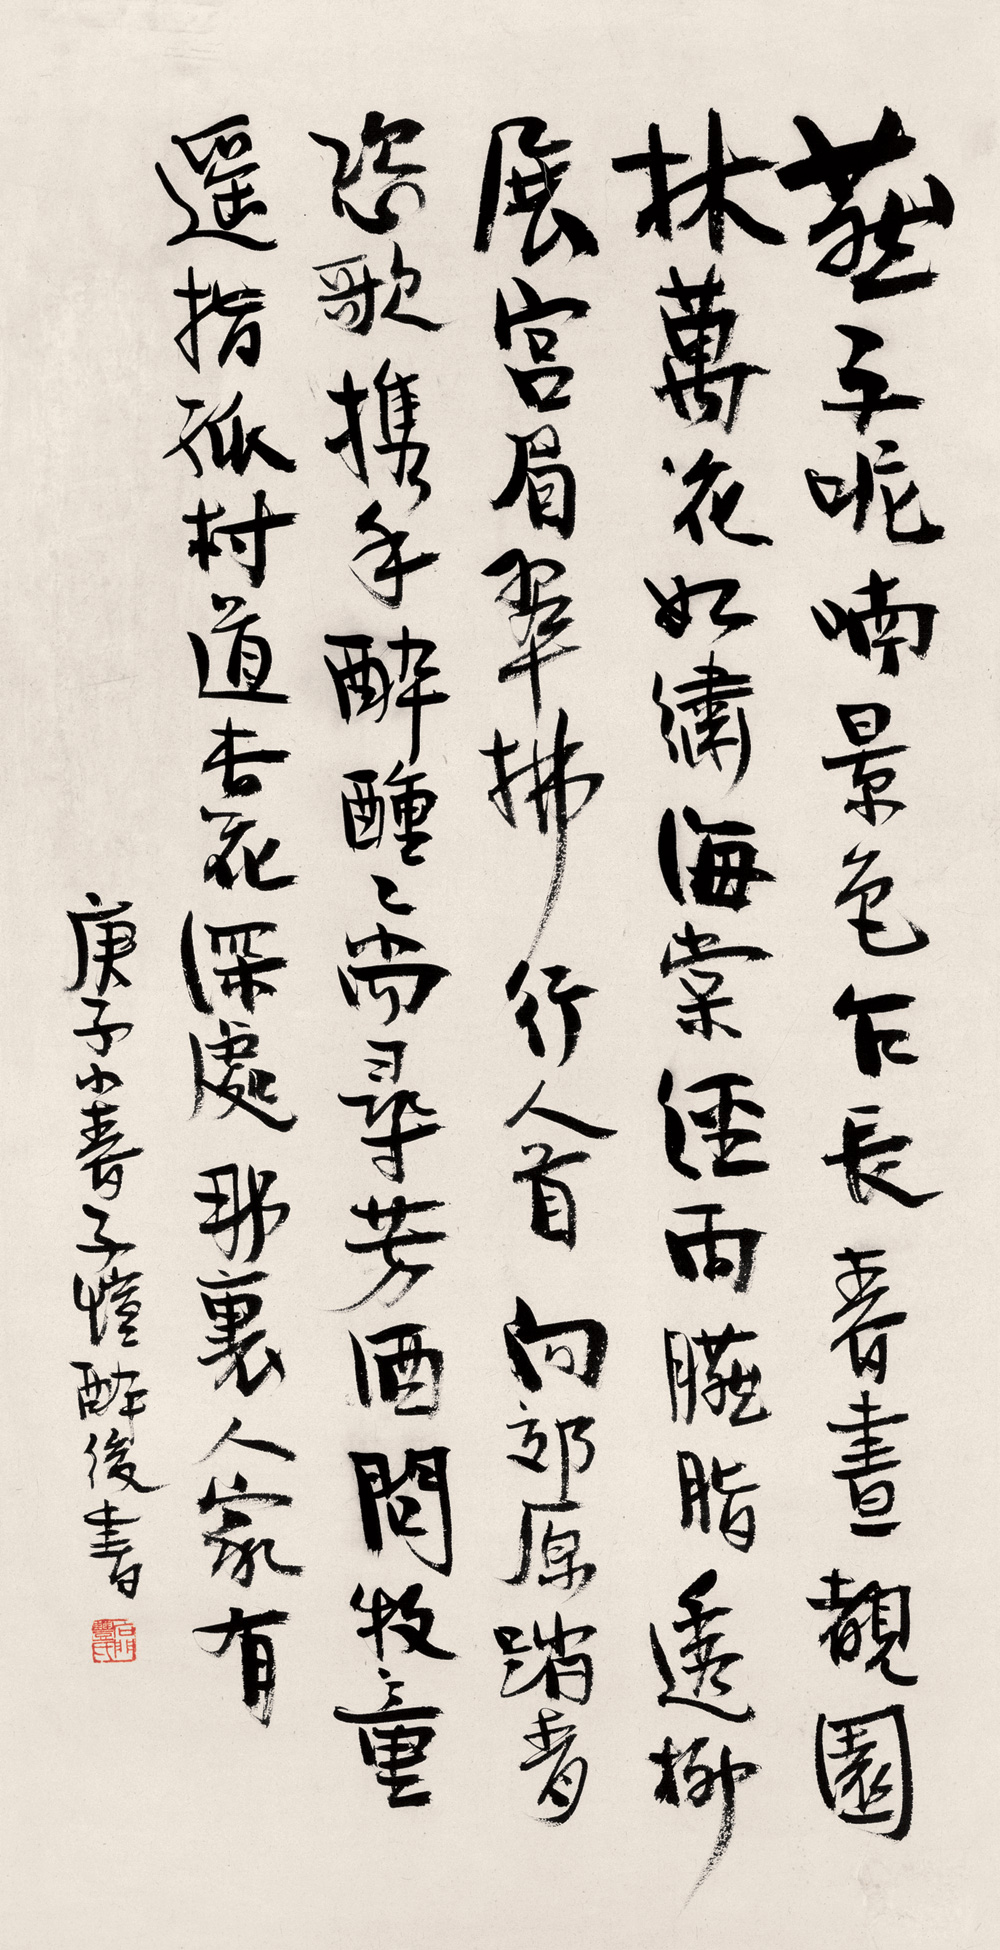 燕子呢喃景色乍長春晝覩園
林萬花如繡海棠經雨臙脂透柳
展宮眉翠拂行人首向郊原踏青
恣歌携手醉醺〻尚尋芳酒問牧童
遥指孤村道杏花深處那裏人家有
庚子小春子愷醉後書
石門豐氏